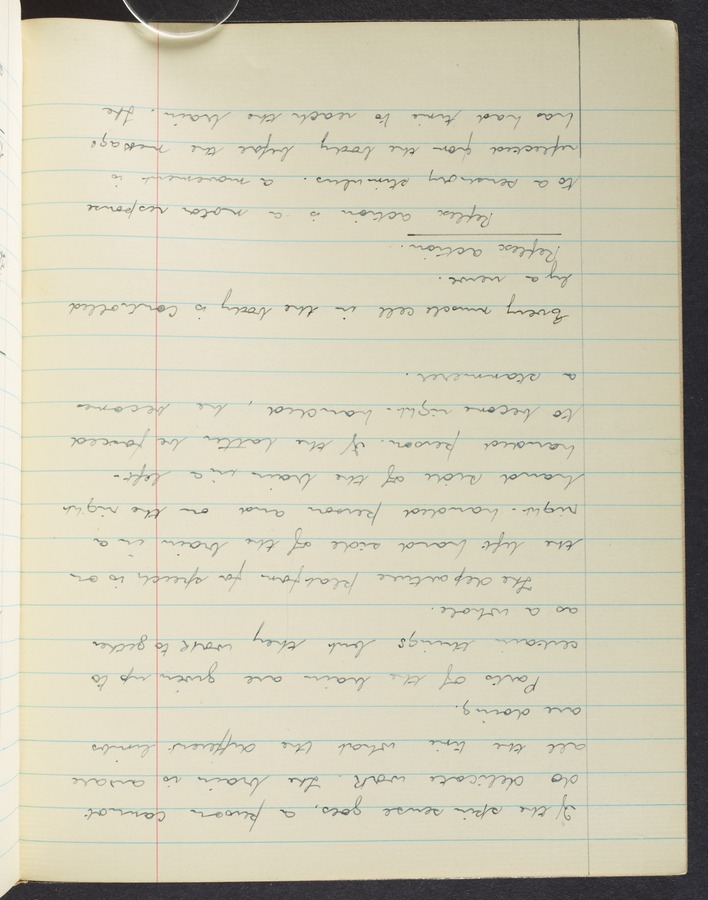 If the skin sense goes, a person cannot
do delicate work. The brain is aware
all the time what the different limbs
are doing.
Parts of the brain are given up to
certain things but they work together
as a whole.
The departure platform for speech is on
the left hand side of the brain in a
right-handed person and on the right
hand side of the brain in a left-
handed person. If the latter be forced
to become right-handed, he becomes
a stammerer.
Every muscle cell in the body is controlled
by a nerve.
Reflex action.
Reflex action is a motor response
to a sensory stimulus. A movement is
reflected from the body before the message
has had time to reach the brain. The